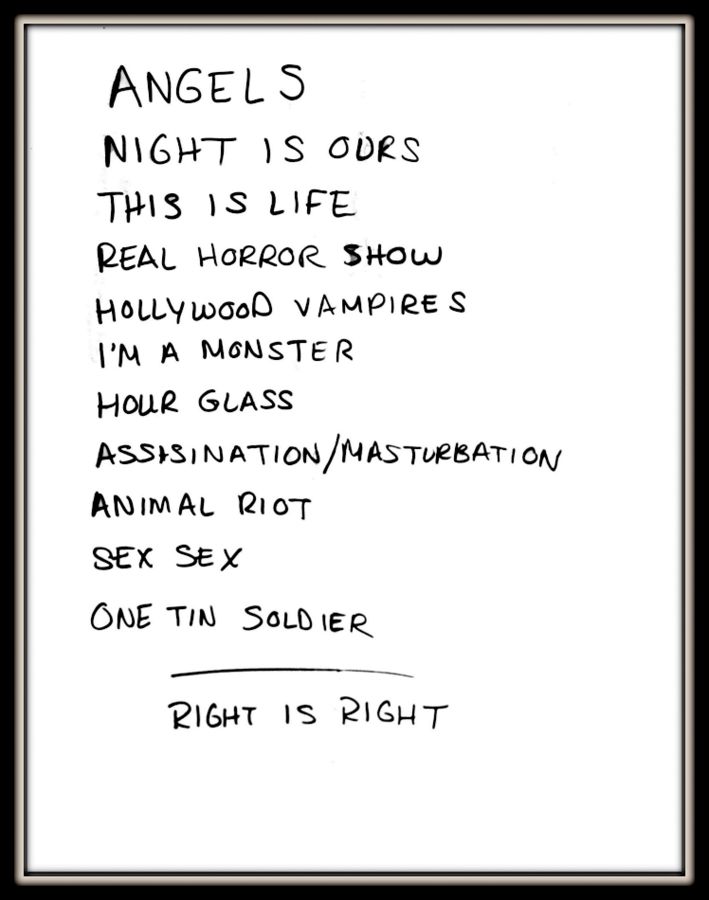 ANGELS
NIGHT IS OURS
THIS IS LIFE
REAL HORROR SHOW
HOLLYWOOD VAMPIRES
I'M A MONSTER
HOUR GLASS
ASSISINATION/MASTURBATION
ANIMAL RIOT
SEX SEX
ONE TIN SOLDIER
RIGHT IS RIGHT